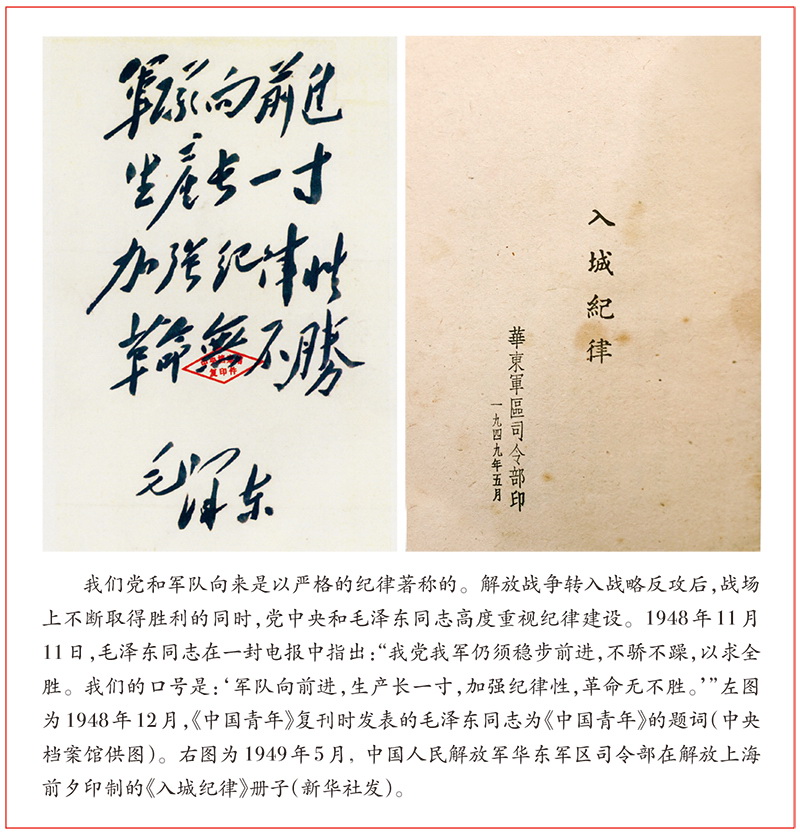 軍队向前進
生產長一寸
加强紀律性
革命無不勝
复印件
毛泽东
入城紀律
華東軍區司令部印
一九四九年五月
我们党和军队向来是以严格的纪律著称的。解放战争转入战略反攻后,战场
上不断取得胜利的同时,党中央和毛泽东同志高度重视纪律建设。1948年11月
11日,毛泽东同志在一封电报中指出:“我党我军仍须稳步前进,不骄不躁,以求全
胜。我们的口号是:‘军队向前进,生产长一寸,加强纪律性,革命无不胜。’”左图
为1948年12月,《中国青年》复刊时发表的毛泽东同志为《中国青年》的题词(中央
档案馆供图)。右图为1949年5月,中国人民解放军华东军区司令部在解放上海
前夕印制的《入城纪律》册子(新华社发)。